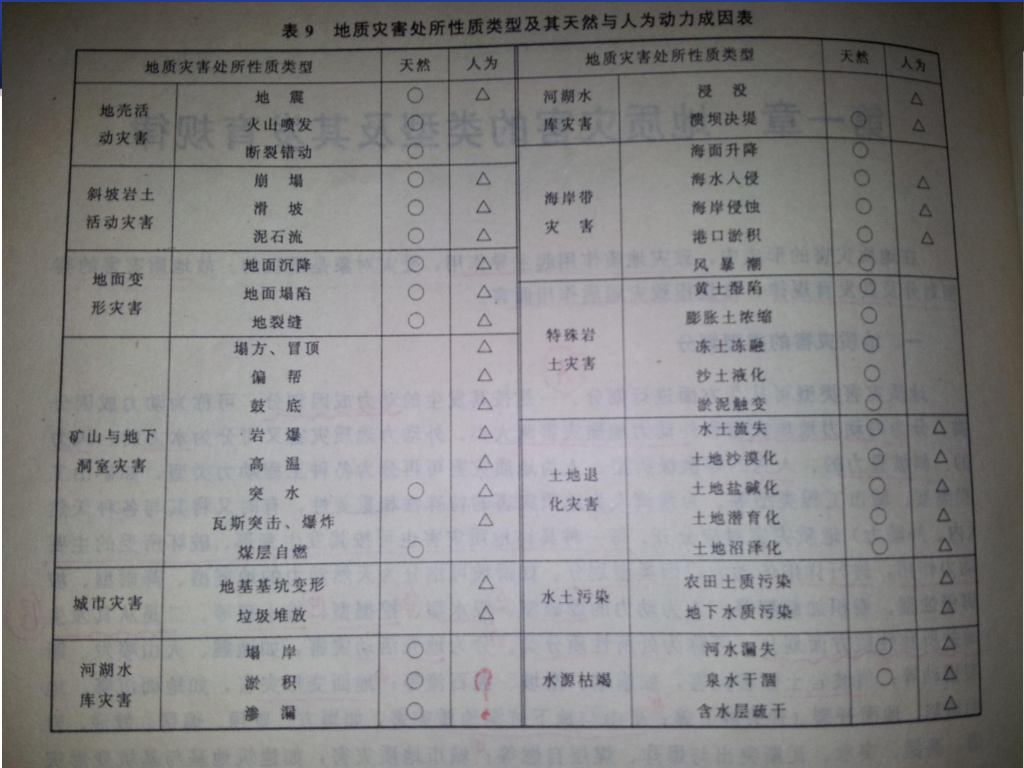 表 9 地质灾害处所性质类型及其天然与人为动力成因表
地质灾害处所性质类型 天然 人为
地壳活动灾害
地震 ○ △
火山喷发 ○
断裂错动 ○
斜坡岩土活动灾害
崩塌 ○ △
滑坡 ○ △
泥石流 ○ △
地面变形灾害
地面沉降 ○ △
地面塌陷 ○ △
地裂缝 ○ △
矿山与地下洞室灾害
塌方、冒顶 △
偏帮 △
鼓底 △
岩爆 △
高温 △
突水 ○ △
瓦斯突击、爆炸 △
煤层自燃 ○
城市灾害
地基基坑变形 △
垃圾堆放 △
河湖水库灾害
塌岸 ○
淤积 ○ ?
渗漏 ○
地质灾害处所性质类型 天然 人为
河湖水库灾害
浸没 △
溃坝决堤 ○ △
海岸带灾害
海面升降 ○
海水入侵 ○ △
海岸侵蚀 ○ △
港口淤积 ○ △
风暴潮 ○
特殊岩土灾害
黄土湿陷 ○
膨胀土浓缩 ○
冻土冻融 ○
沙土液化 ○
淤泥触变 ○
土地退化灾害
水土流失 ○ △
土地沙漠化 ○ △
土地盐碱化 ○ △
土地潜育化 ○ △
土地沼泽化 ○ △
水土污染
农田土质污染 △
地下水质污染 △
水源枯竭
河水漏失 ○ △
泉水干涸 ○ △
含水层疏干 △